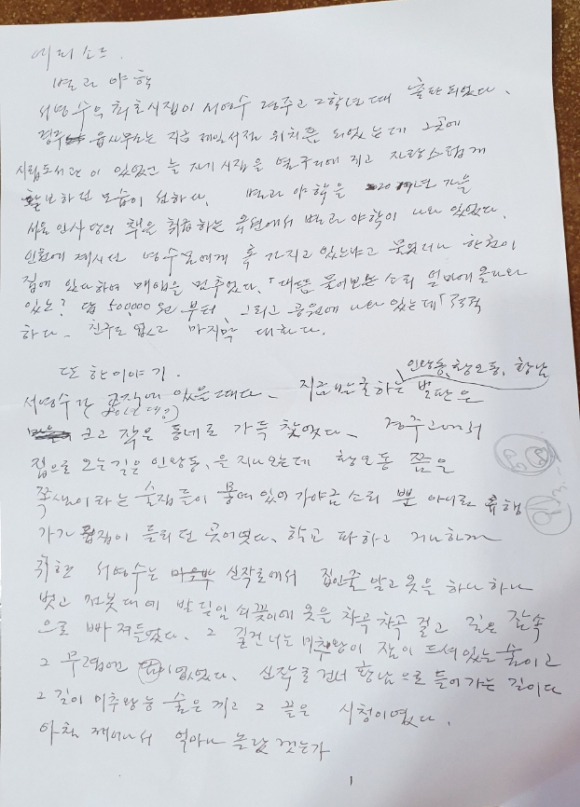 에피소드.
별과 야학
서영수의 최초시집이 서영수 경주고 2학년때 출판되었다.
경주 읍사무소는 지금 제일서점 위치쯤 되었는데 그곳에
시립도서관이 있었고 늘 자기시집을 옆구리에 끼고 자랑스럽게
활보하던 모습이 선하다. 별과 야학을 20 년 가을
서울 인사동의 책은 취급하는 옥션에서 별과 야학이 나와 있었다.
인편에 계시단 영수 에게 혹 가지고 있는냐고 물었더니 한권이
집에 있다하여 매입을 멈추었다.「대뜸 물어보는 소리 얼마에 올라와
있노? 답 500,000원부터, 그리고 공원에 나와 있는데「적적
하다- 친구도 없고 마지막 대화다.
또 한 이야기.
인왕동, 황오동, 황남
서영수가 있을때다. 지금 발굴하는 벌판은
크고 작은 동네로 가득 찾었다. 경주고에서
집으로 오는길은 인왕동,은 지나오는데 황오동 쯤은
쪽샘이라는 술집들이 몰여 있어 가야금 소리 뿐 아니라 유행
가가 집이 들리던 곳이엿다. 학교 파하고 거나하게
취한 서영수는 신작로에서 집인줄 알고 옷을 하나 하나
벗고 전봇대에 발 딛임 쇠꽂이에 옷을 착곡 착곡 걸고 깊은 잠속
으로 빠져들었다. 그 길건너는 미추왕이 잠이 드셔있는 숲이고
그 무렵엔 이 없었다. 신작로 건너 황남으로 들어가는 길이다
그 길이 미추왕능 숲은 끼고 그 끝은 시청이였다.
아침 깨어나서 얼마나 놀랐겠는가
1